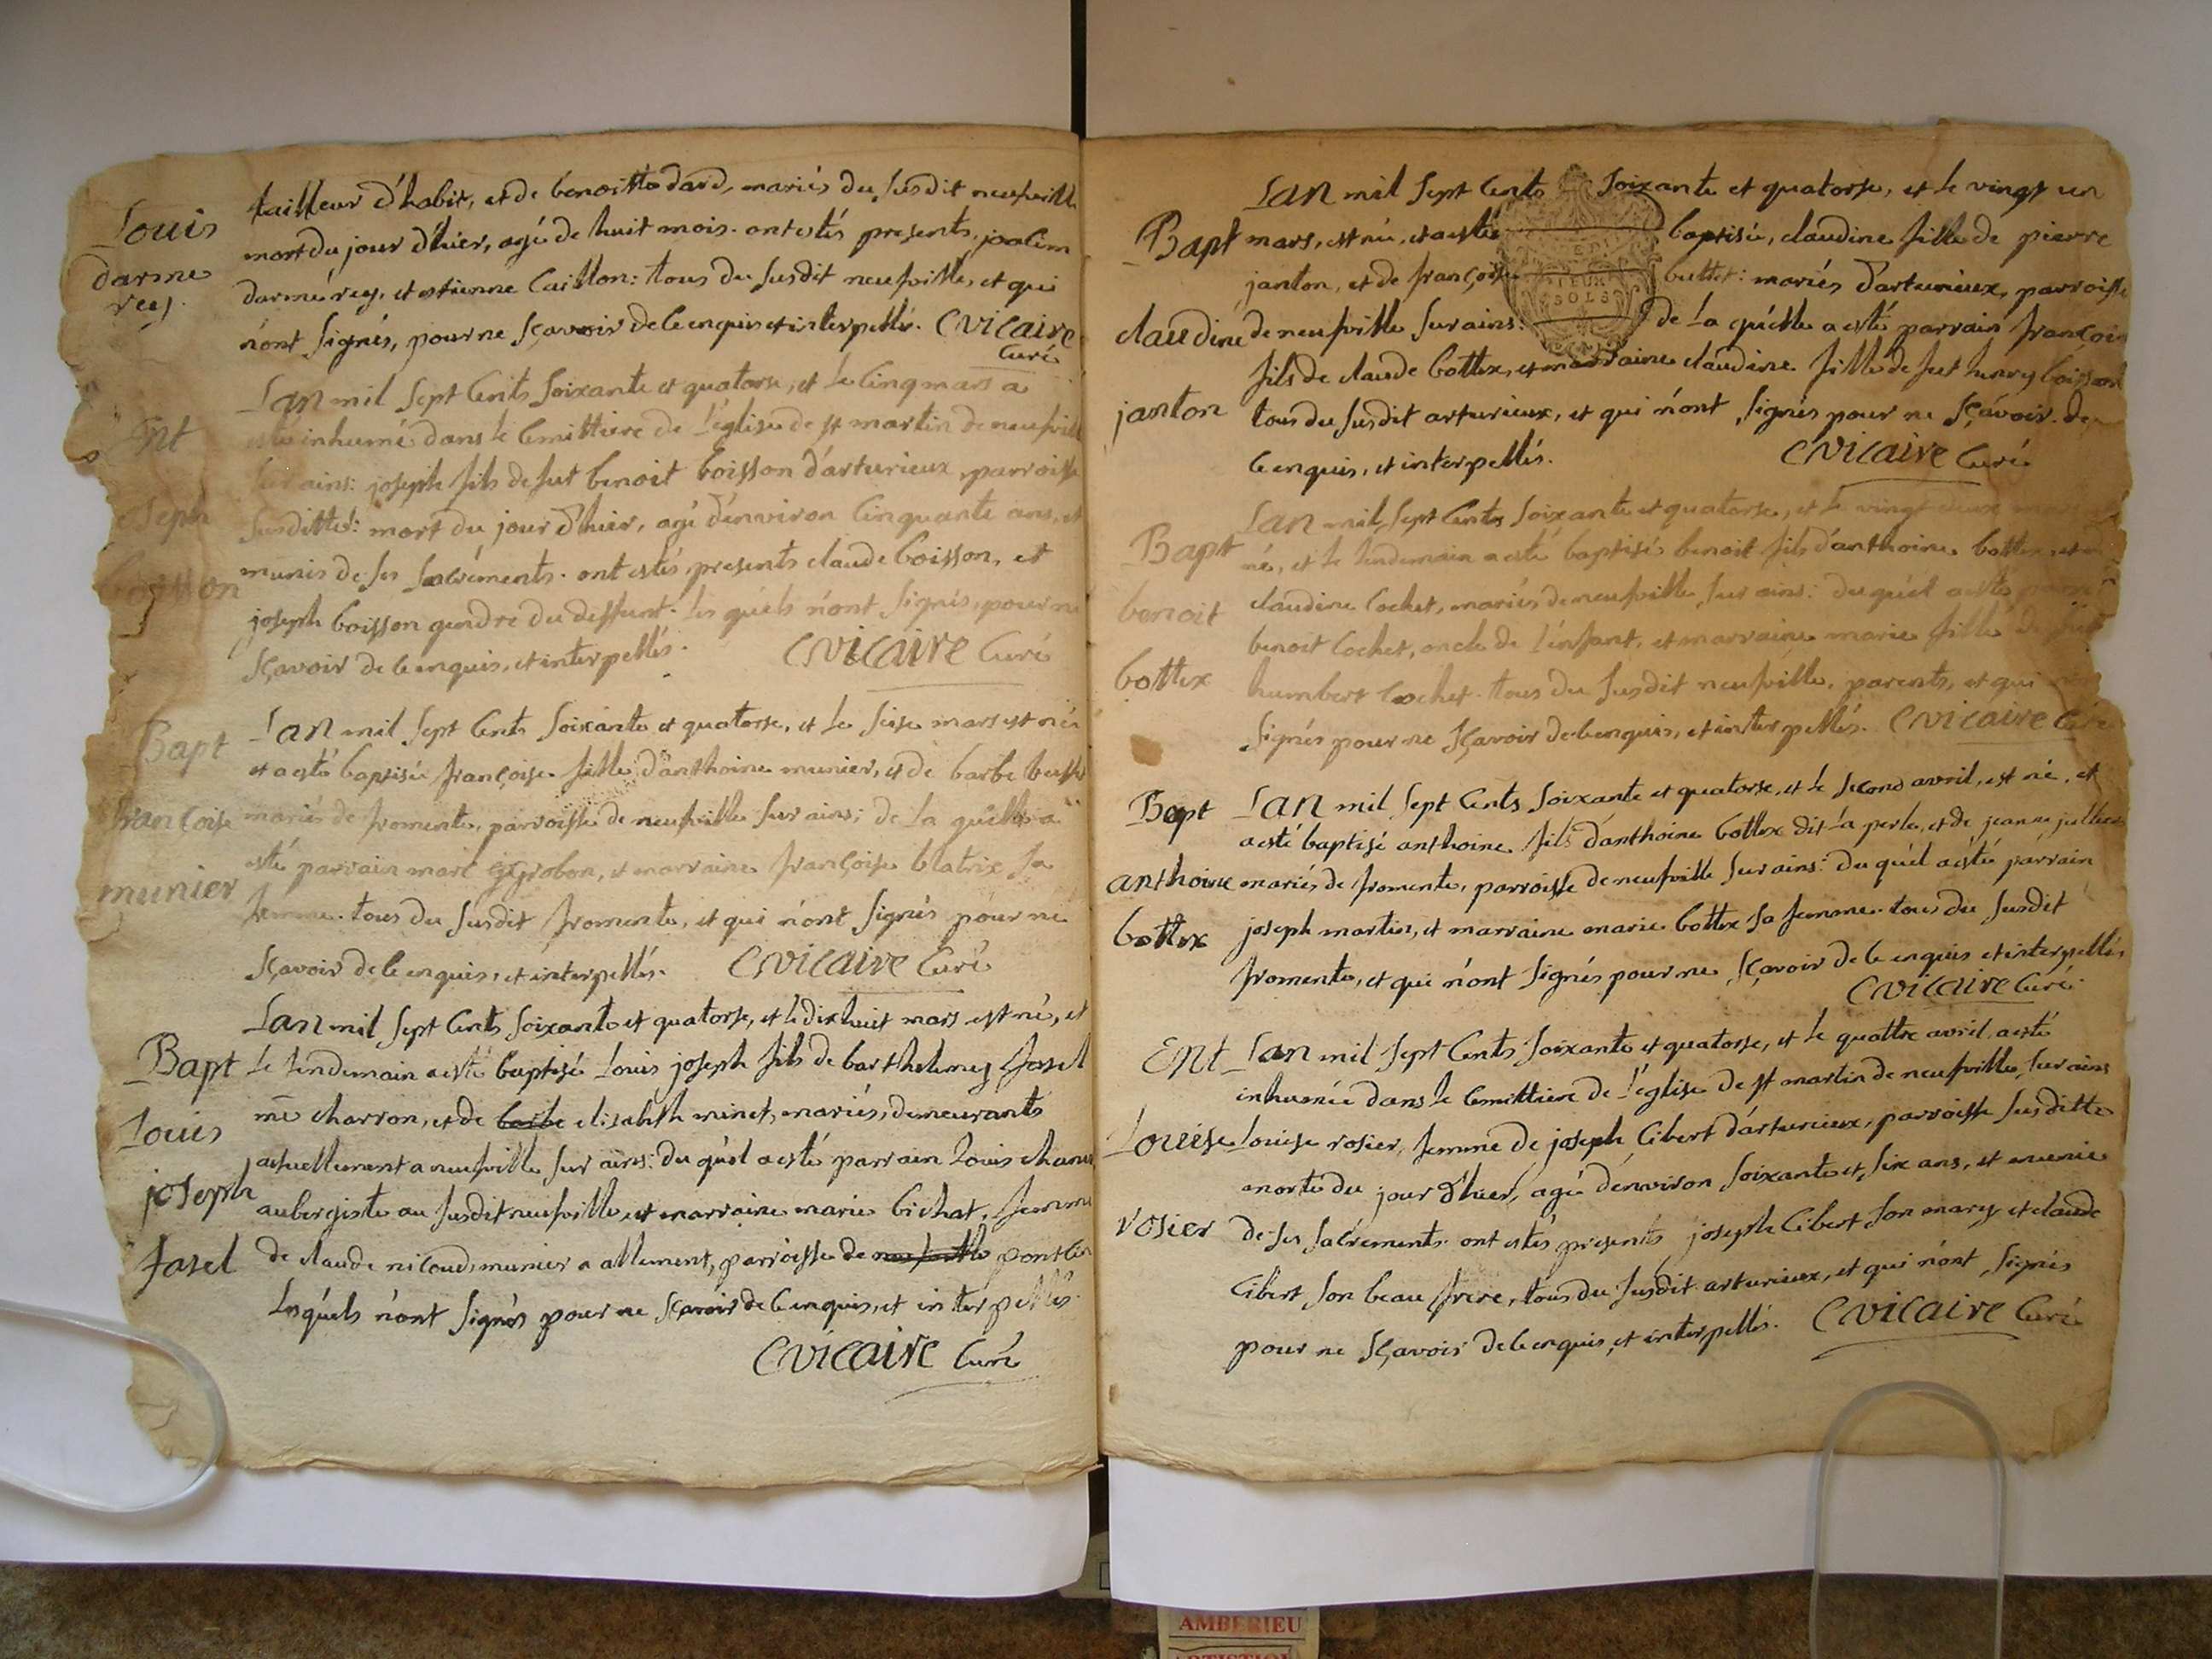 Louis
darme
rey.
tailleur d'habit, et de benoitte dard, mariés du susdit neufville
mort du jour d'hier, agé de huit mois. ont estés presents, joachim
darmérey, et estienne Caillon: tous du susdit neufville, et qui
n'ont signés, pour ne sçavoir de ce enquis et interpellés. CViCaire
Curé
Ent
Joseph
boisson
L'an mil sept Cents soixante et quatorse, et le Cinq mars a
esté inhumé dans le Cemittiere de l'église de st martin de neufville
sur ains: joseph fils de fut benoit boisson d'arturieux, parroisse
susditte: mort du jour d'hier, agé d'environ Cinquante ans, et
munis de ses sacréments. ont estés presents claude boisson, et
joseph boisson gendre du deffunt. les quéls n'ont signés, pour ne
sçavoir de ce enquis, et interpellés. CViCaire Curé
Bapt
françoise
munier
L'an mil sept Cents soixante et quatorse, et le seise mars est née
et a esté baptisée françoise fille d'anthoine munier, et de barbe
mariés de fromente, parroisse de neufville sur ains; de la quélle a
esté parrain marc grobon, et marraine françoise blatrix sa
femme. tous du susdit fromente, et qui n'ont signés pour ne
sçavoir de ce enquis, et interpellés. CViCaire Curé
Bapt
Louis
joseph
fasel
L'an mil sept Cents soixante et quatorse, et le dix huit mars est né, et
le lendemain a esté baptisé Louis joseph fils de barthelemey fasel
me charron, et de barbe elisabeth minet, mariés, demeurants
actuellement a neufville sur ains: du quél a esté parrain Louis
aubergiste au susdit neufville, et marraine marie bichat, femme
de claude nicoud, munier a allement, parroisse de neufville
lesquéls n'ont signés pour ne sçavoir de ce enquis, et interpellés.
CViCaire Curé
Bapt
claudine
janton
L'an mil sept Cents soixante et quatorse, et le vingt un
mars, est née, et a estée baptisée, claudine fille de pierre
janton, et de françoise buttet: mariés d'arturieux, parroisse
DEUX
SOLS
de neufville sur ains: de la quélle a esté parrain françois
fils de claude bottex, et marraine claudine fille de fut henry boisson
tous du susdit arturieux, et qui n'ont signés pour ne sçavoir. de
ce enquis, et interpellés. CViCaire Curé
Bapt
benoit
bottex
L'an mil sept Cents soixante et quatorse, et le vingt deux mars
né, et le lendemain a esté baptisé benoit fils d'anthoine bottex, et
claudine Cochet, mariés de neufville sur ains: du quél a esté
benoit Cochet, oncle de l'enfant, et marraine marie fille de
humbert Cochet. tous du susdit neufville, parents, et qui
signés pour ne sçavoir de ce enquis, et interpellés. CViCaire Curé
Bapt
anthoine
bottex
L'an mil sept Cents soixante et quatorse, et le second avril, est né, et
a esté baptisé anthoine fils d'anthoine bottex dit la perle, et de jeanne
mariés de fromente, parroisse de neufville sur ains: du quél a esté parrain
joseph martin, et marraine marie bottex sa femme. tous du susdit
fromente, et qui n'ont signés pour ne sçavoir de ce enquis et interpellés
CViCaire Curé
Ent
Louise
rosier
L'an mil sept Cents soixante et quatorse, et le quattre avril a esté
inhumée dans le Cemittiere de l'église de st martin de neufville sur ains
Louise rosier, femme de joseph Cibert d'arturieux, parroisse susditte
morte du jour d'hier, agée d'environ soixante et six ans, et munie
de ses sacrements. ont estés presents joseph Cibert son mary et claude
Cibert son beau frere, tous du susdit arturieux, et qui n'ont signés
pour ne sçavoir de ce enquis, et interpellés. CViCaire Curé
AMBERIEU